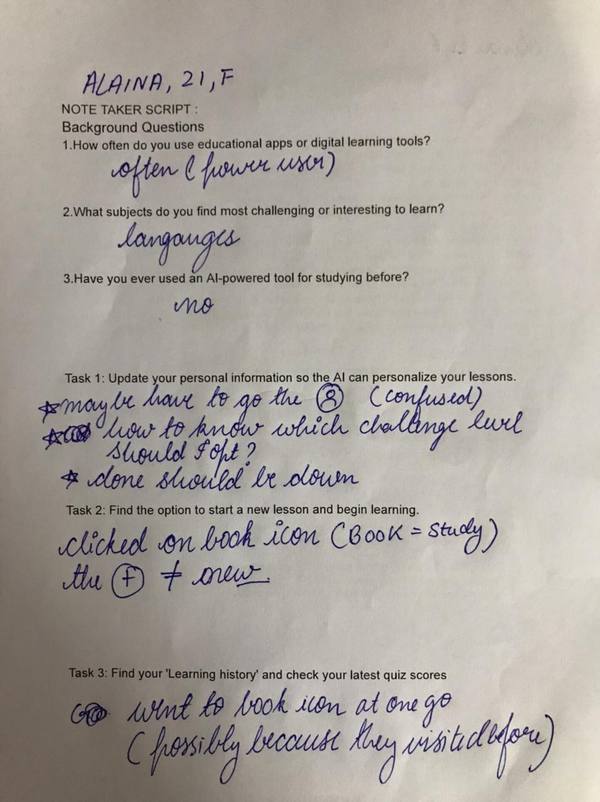 ALAINA, 21, F
NOTE TAKER SCRIPT :
Background Questions
1.How often do you use educational apps or digital learning tools?
often (power user)
2.What subjects do you find most challenging or interesting to learn?
langauges
3.Have you ever used an AI-powered tool for studying before?
no
Task 1: Update your personal information so the AI can personalize your lessons.
* maybe have to go the (confused)
* how to know which challenge level
should I opt?
* done should be down
Task 2: Find the option to start a new lesson and begin learning.
clicked on book icon (BOOK = Study)
the + ≠ new
Task 3: Find your 'Learning history' and check your latest quiz scores
went to book icon at one go
(possibly because they visited before)